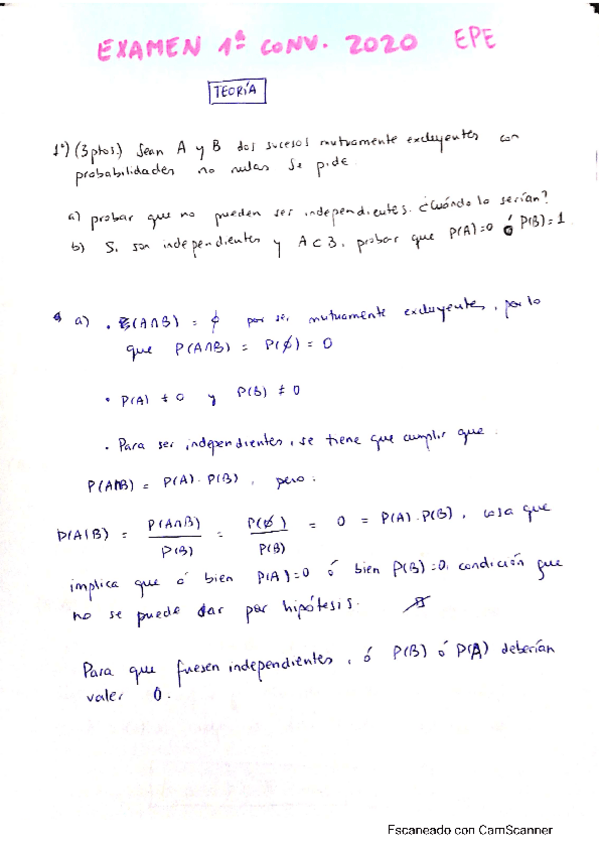 EXAMEN 1ª CONV. 2020 EPE
TEORÍA
1º) (3ptos.) Sean A y B dos sucesos mutuamente excluyentes con
probabilidades no nulas Se pide.
a) probar que no pueden ser independientes. ¿Cuándo lo serían?
b) Si son independientes y A ⊂ B, probar que P(A)=0 ó P(B)=1
a) . (A∩B) = ϕ por ser mutuamente excluyentes, por lo
que P(A∩B) = P(ϕ) = 0
· P(A) ≠ 0 y P(B) ≠ 0
. Para ser independientes, se tiene que cumplir que.
P(A∩B) = P(A) · P(B), pero:
P(A|B) = P(A∩B) / P(B) = P(ϕ) / P(B) = 0 = P(A) · P(B), cosa que
implica que ó bien P(A)=0 ó bien P(B)=0, condición que
no se puede dar por hipótesis.
Para que fuesen independientes, ó P(B) ó P(A) deberían
valer 0.
Escaneado con CamScanner